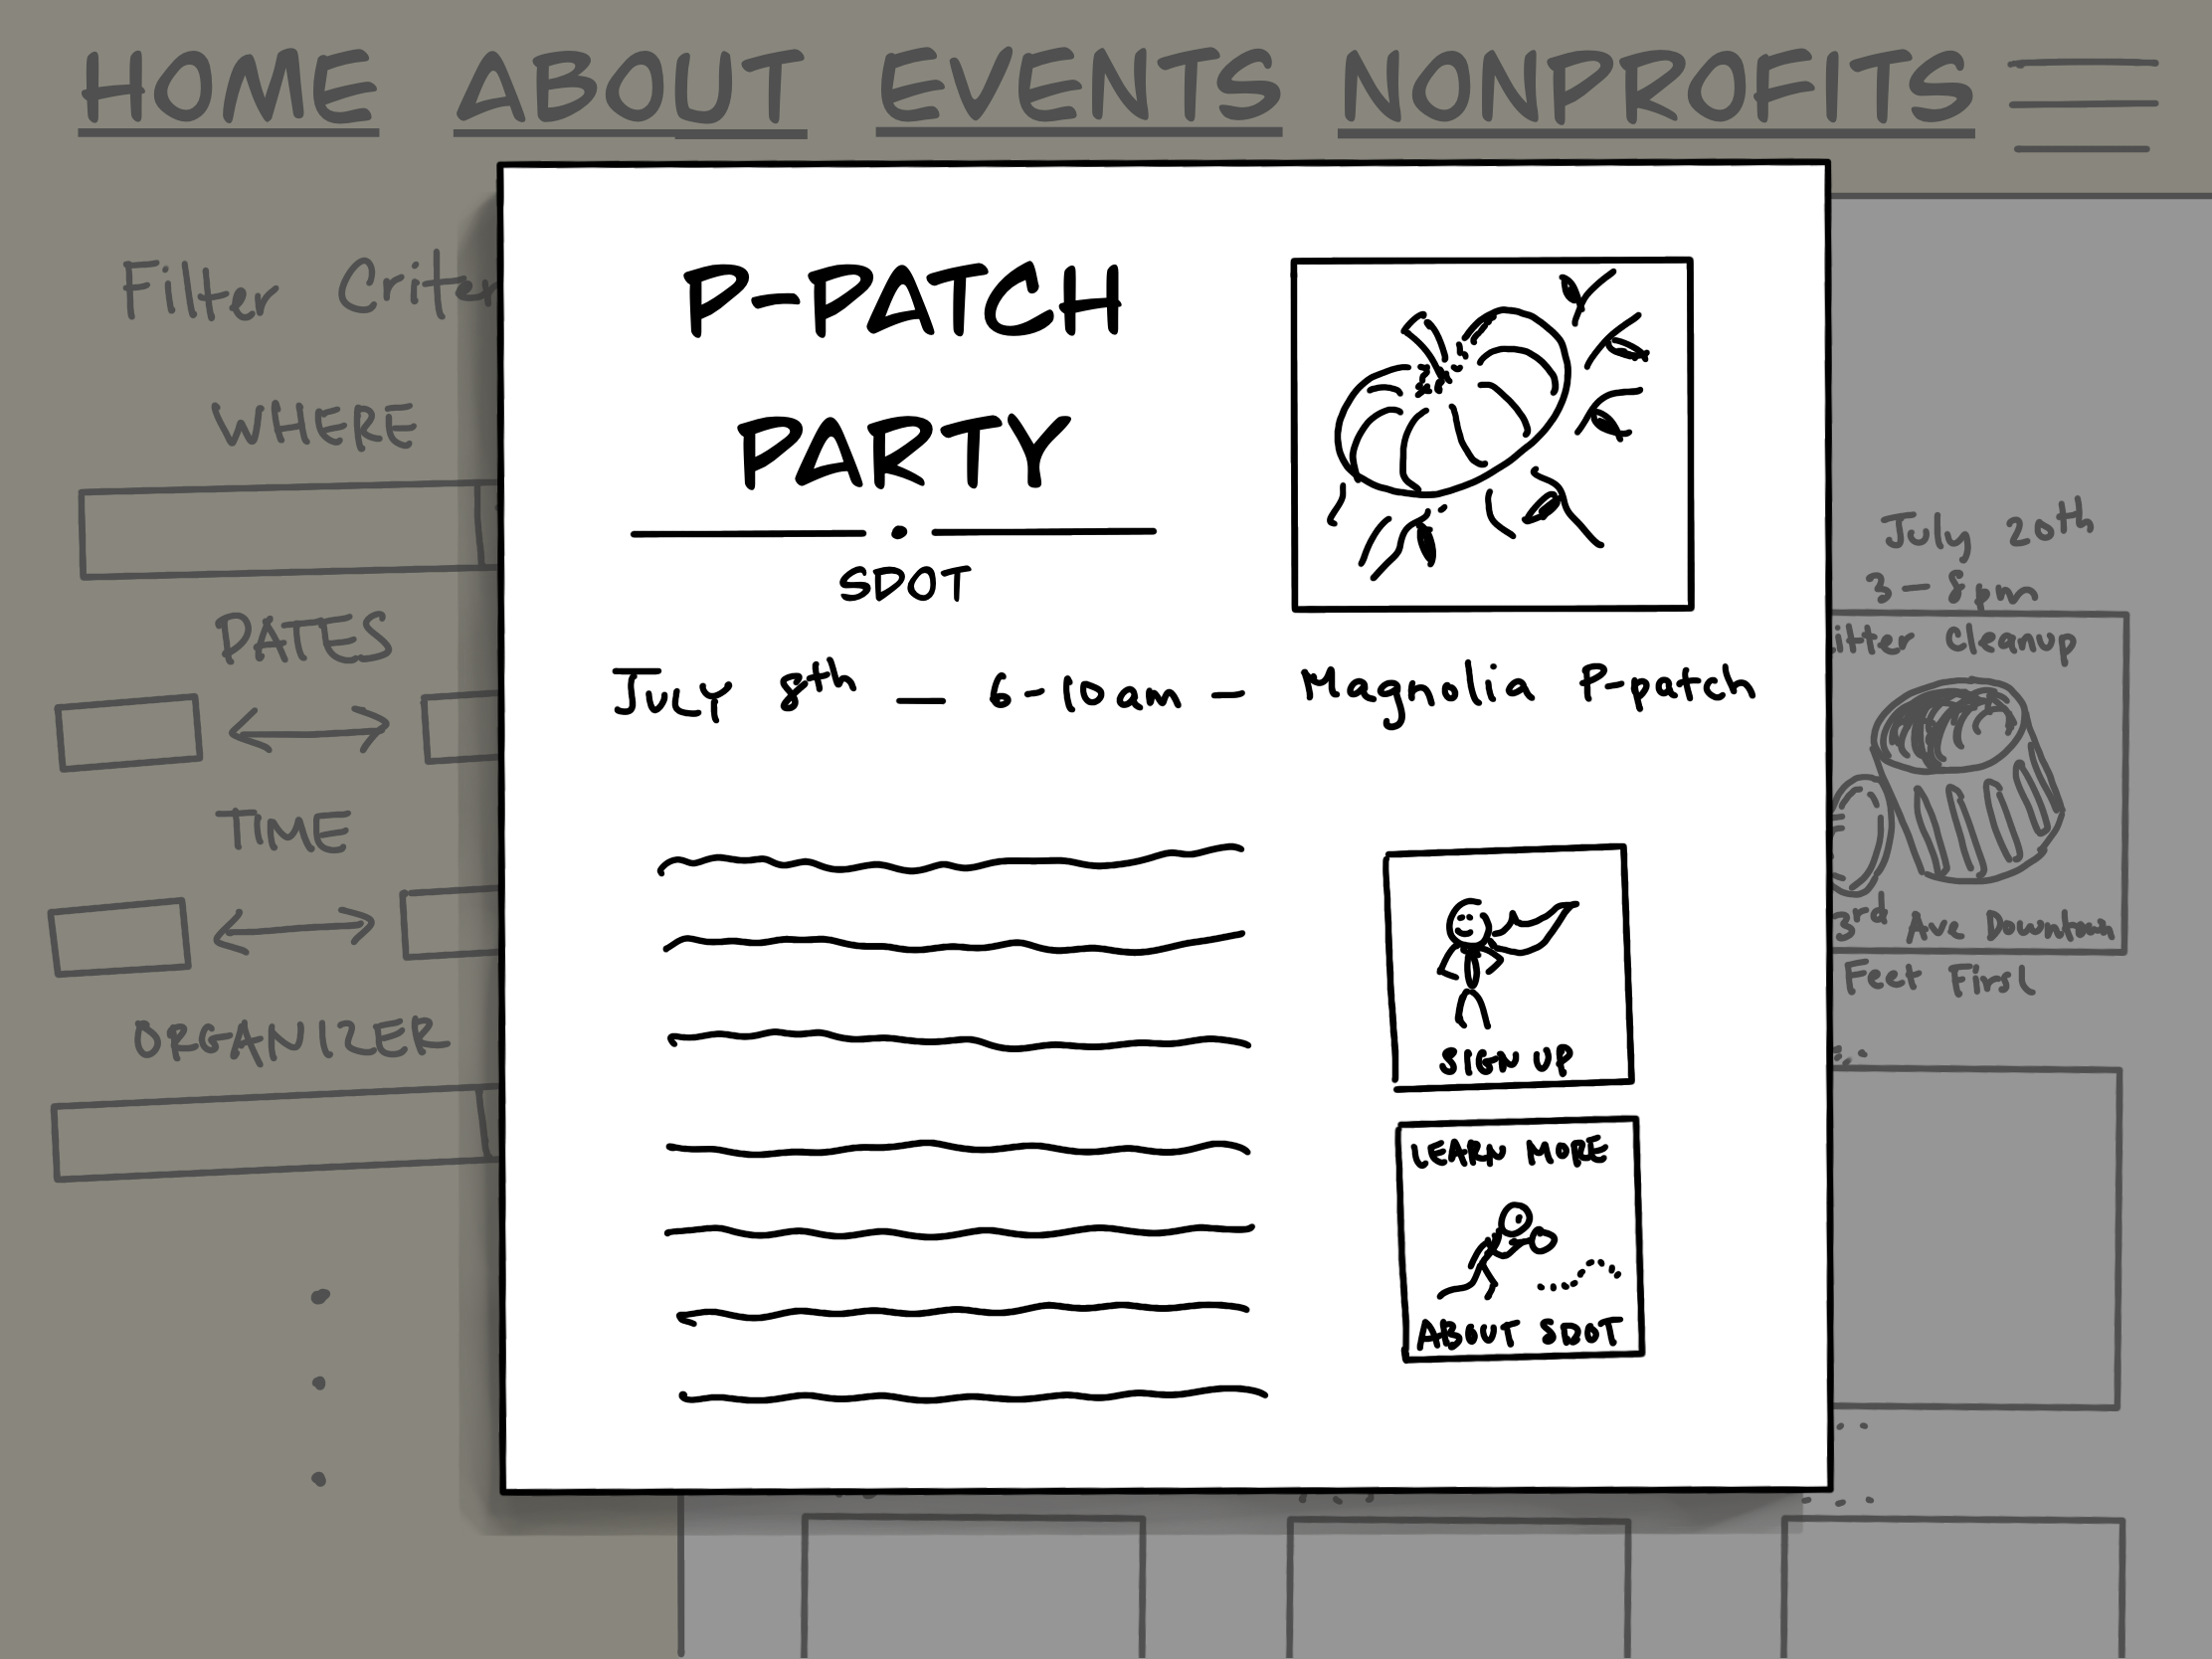 HOME ABOUT EVENTS NONPROFITS
Filter Criter
WHERE
DATES
TIME
ORGANIZER
P-PATCH
PARTY
SDOT
July 8th — 6-10am — Magnolia P-patch
SIGN UP
LEARN MORE
ABOUT SDOT
July 20th
3-8pm
itter Cleanup
3rd Ave Downtown
Feet First